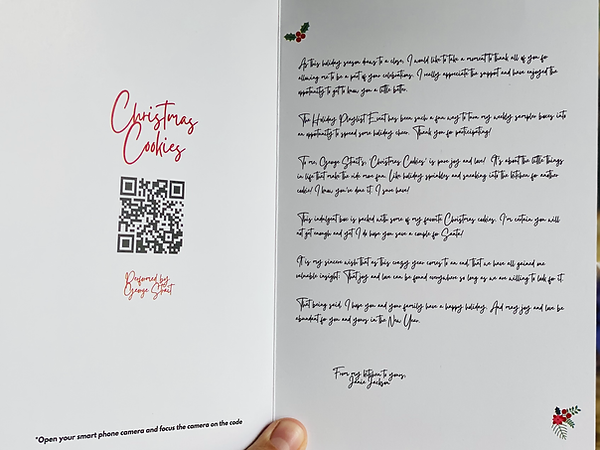 Christmas
Cookies
Performed by
George Strait
*Open your smart phone camera and focus the camera on the code
As this holiday season draws to a close, I would like to take a moment to thank all of you for
allowing me to be a part of your celebrations. I really appreciate the support and have enjoyed the
opportunity to get to know you a little better.
The Holiday Playlist Event has been such a fun way to turn my weekly sampler boxes into
an opportunity to spread some holiday cheer. Thank you for participating!
To me, George Strait's, "Christmas Cookies" is pure joy and love! It's about the little things
in life that make the ride more fun. Like holiday sprinkles and sneaking into the kitchen for another
cookie! I know you've done it. I sure have!
This indulgent box is packed with some of my favorite Christmas cookies. I'm certain you will
not get enough and yet I do hope you save a couple for Santa!
It is my sincere wish that as this crazy year comes to an end, that we have all gained one
valuable insight. That joy and love can be found everywhere so long as we are willing to look for it.
That being said, I hope you and your family have a happy holiday. And may joy and love be
abundant for you and yours in the New Year.
From my kitchen to yours,
Janie Jackson